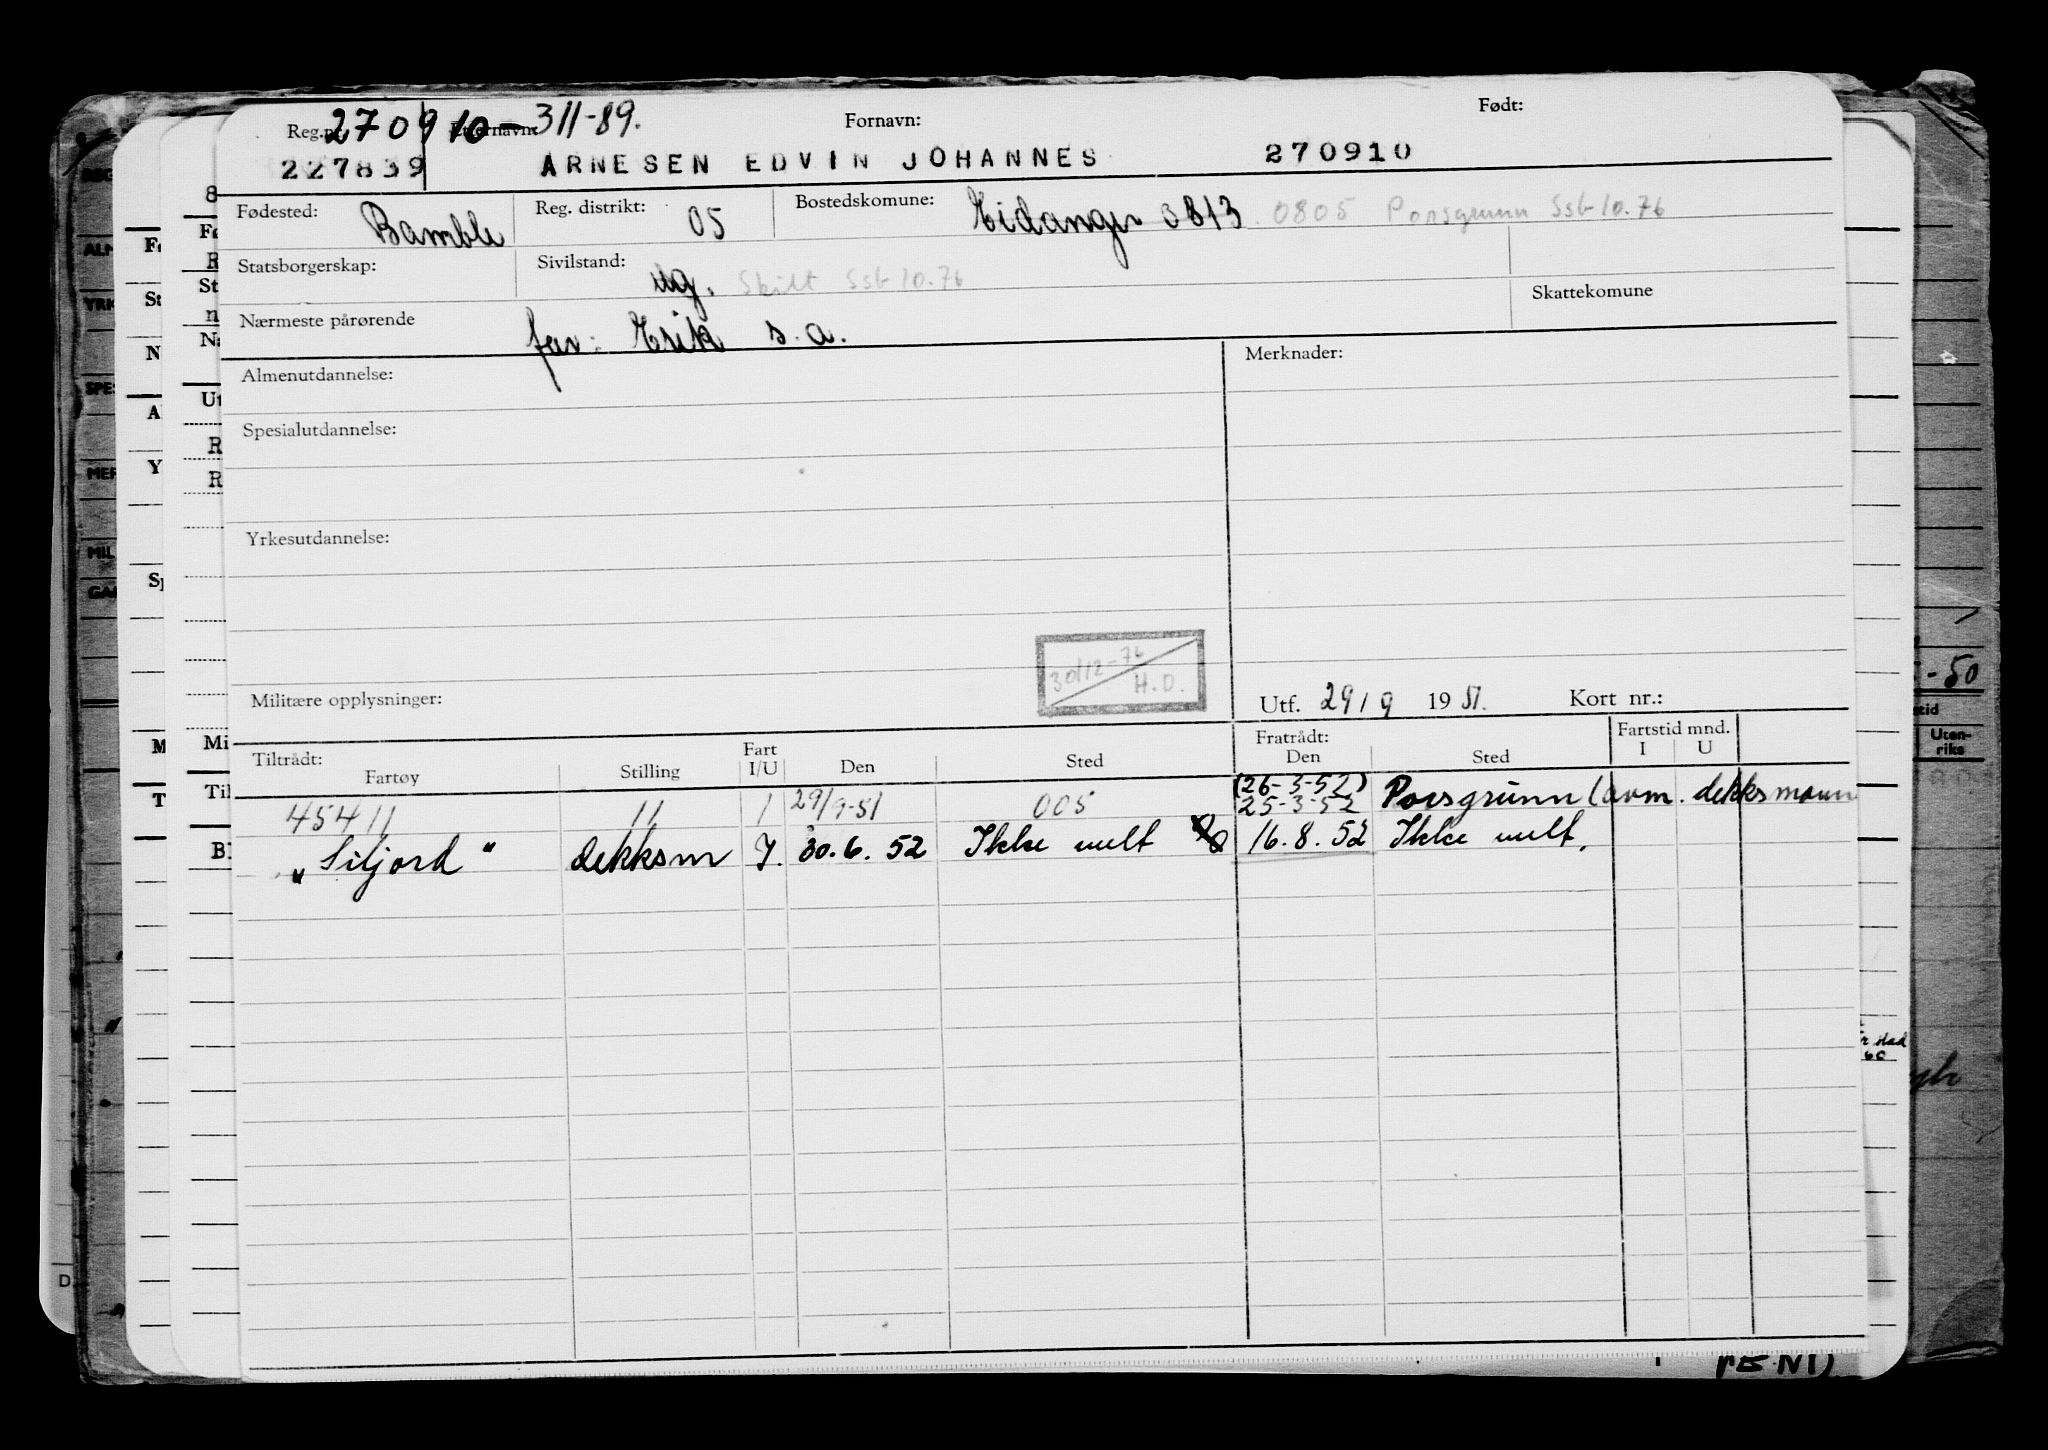 Reg.nr. 270910-311-89. Etternavn: Fornavn: Født:
227839 ARNESEN EDVIN JOHANNES 270910
Fødested: Bamble Reg. distrikt: 05 Bostedskomune: Eidanger 3813 0805 Porsgrunn Ssb 10.76
Statsborgerskap: Sivilstand: ug. Skilt Ssb 10.76
Nærmeste pårørende far: Erik s.a. Skattekomune
Almenutdannelse: Merknader:
Spesialutdannelse:
Yrkesutdannelse:
30/12-76 H.O.
Militære opplysninger: Utf. 29/9 1951. Kort nr.:
Tiltrådt: Fart Fratrådt: Fartstid mnd.
Fartøy Stilling I/U Den Sted Den Sted I U
(26-3-52)
45411 11 1 29/9-51 005 25-3-52 Porsgrunn (avm. dekksmann
"Siljord" dekksm I. 30.6.52 Ikke melt 16.8.52 Ikke melt.